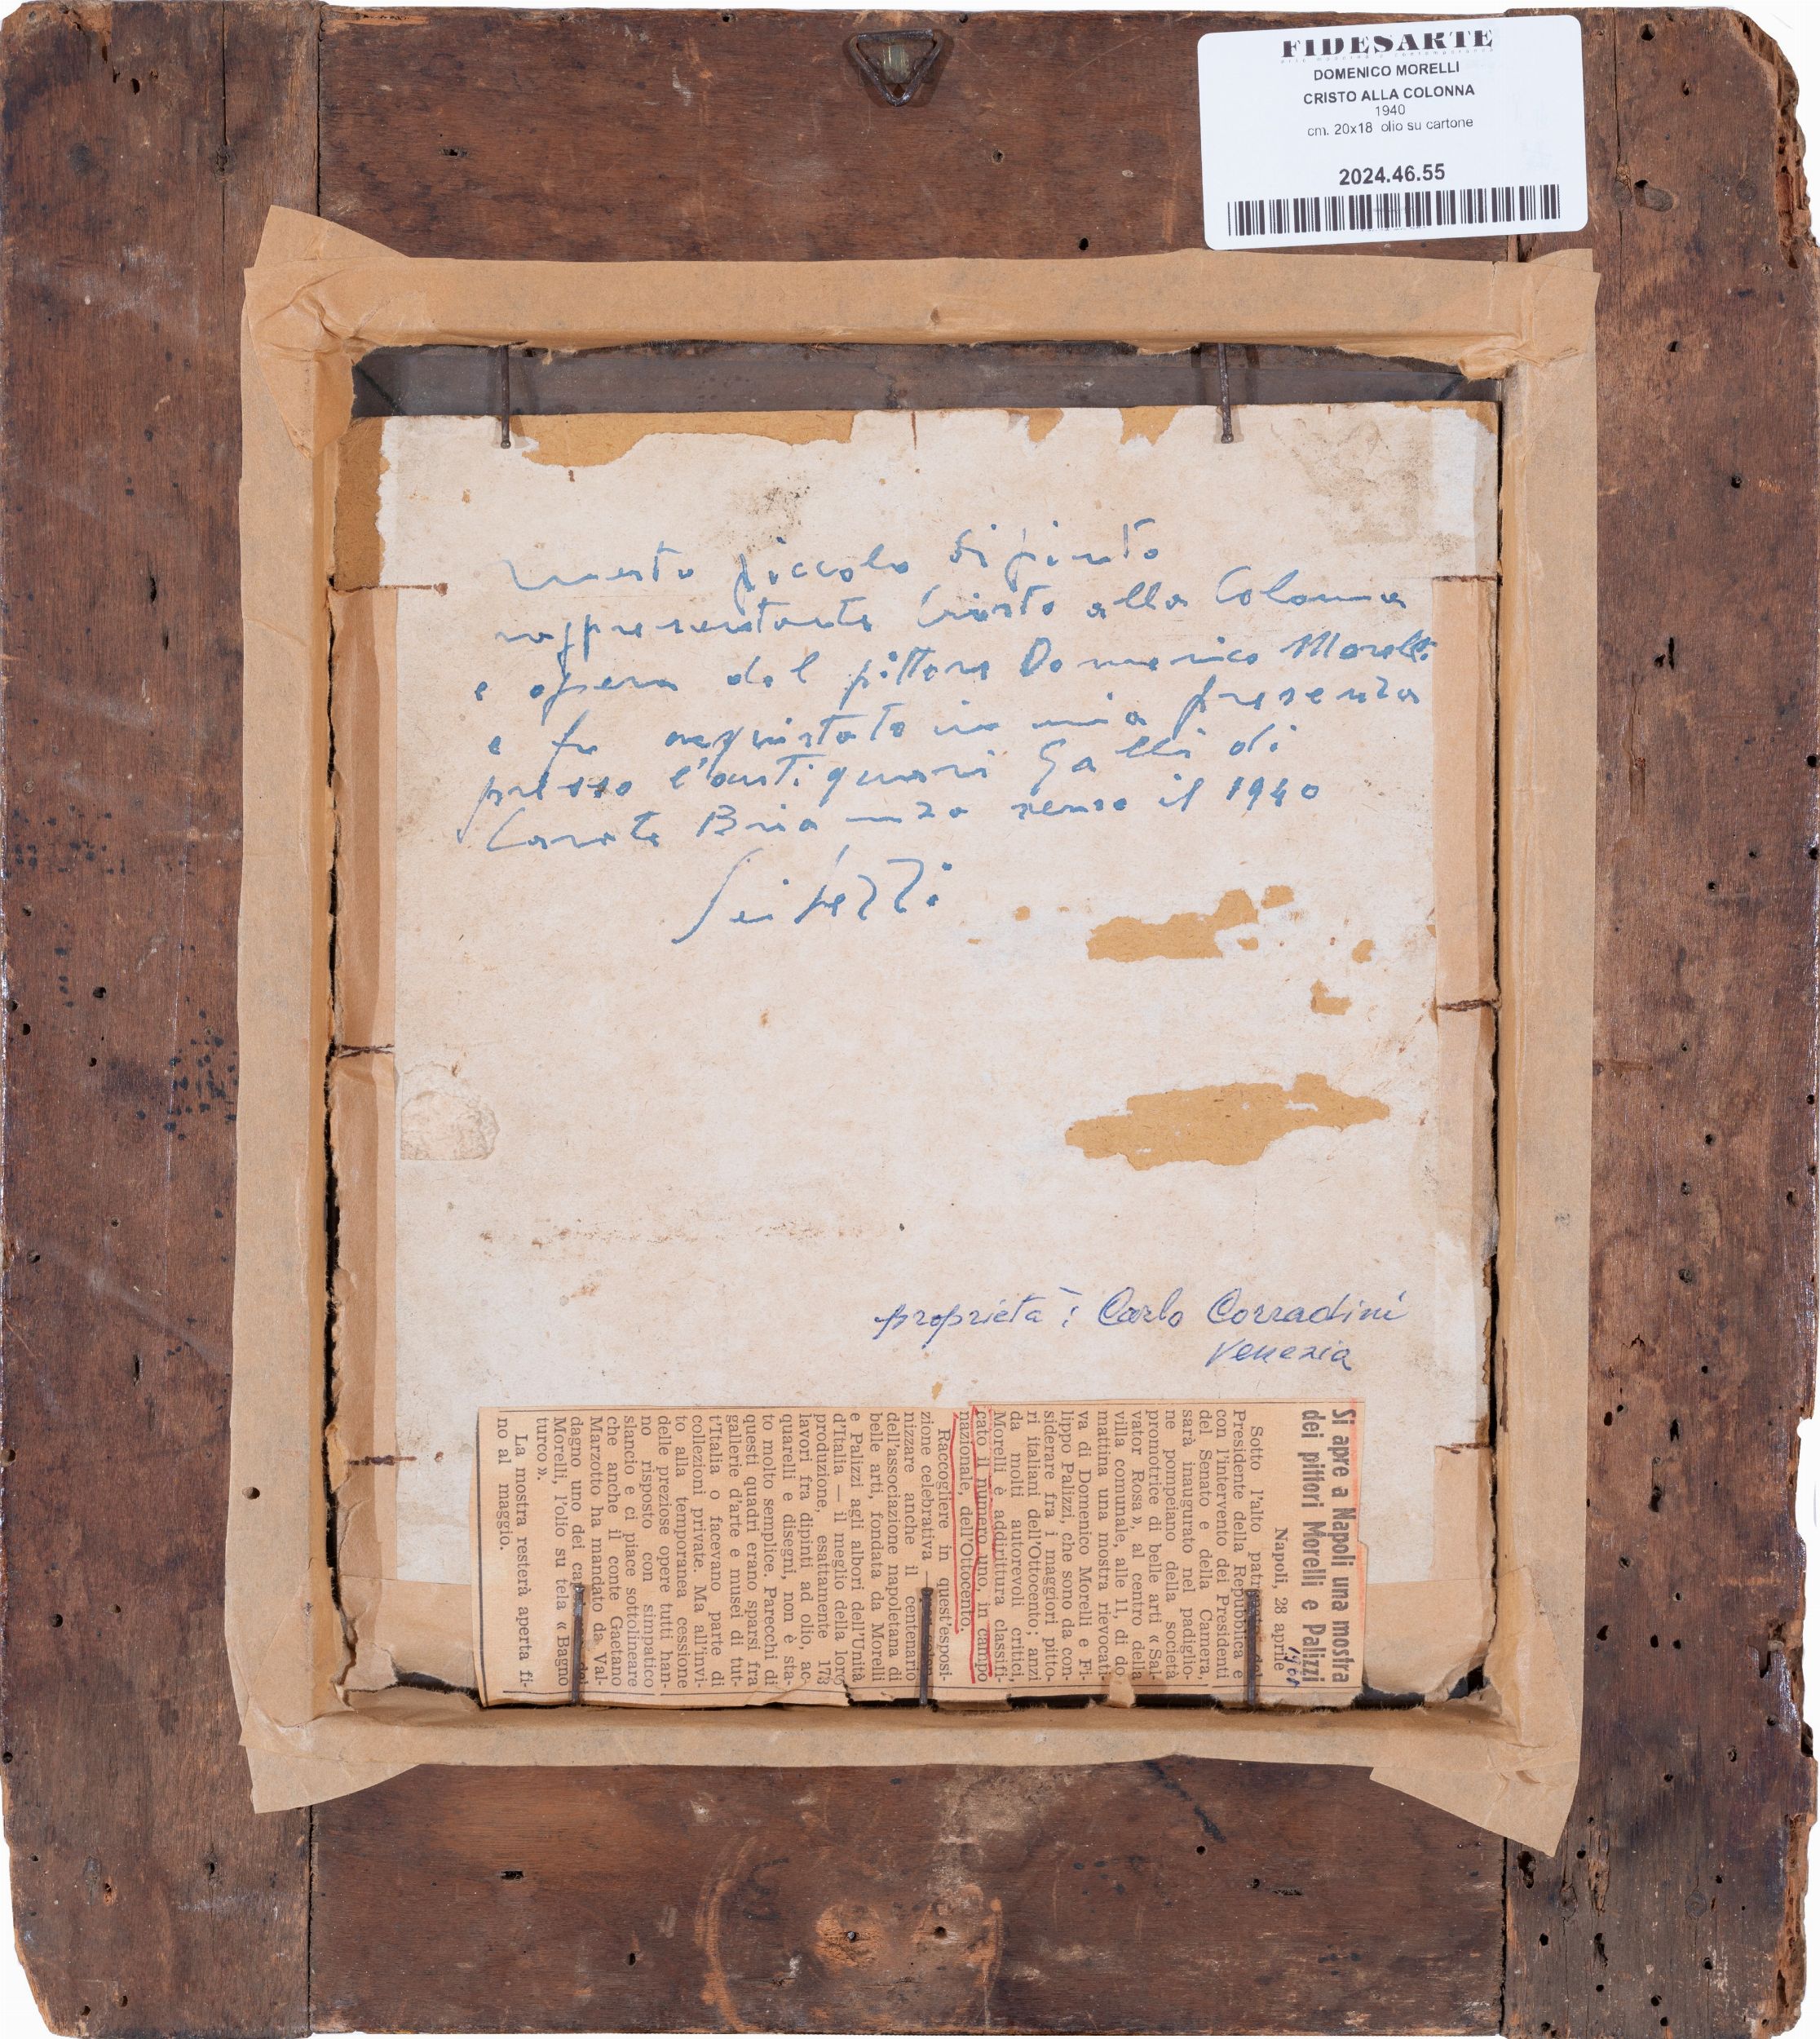 FIDESARTE
DOMENICO MORELLI
CRISTO ALLA COLONNA
1940
cm. 20x18 olio su cartone
2024.46.55
Questo piccolo dipinto
rappresentante Cristo alla Colonna
e opera del pittore Domenico Morelli
e fu acquistato in mia presenza
presso l'antiquari Galli di
Carate Brianza verso il 1940
proprietà: Carlo Corradini
Venezia
Si apre a Napoli una mostra
dei pittori Morelli e Palizzi
Napoli, 28 aprile
Sotto l'alto
Presidente della Repubblica e
con l'intervento dei Presidenti
del Senato e della Camera,
sarà inaugurato nel padiglio-
ne pompeiano della società
promotrice di belle arti « Sal-
vator Rosa », al centro della
villa comunale, alle 11, di do
mattina una mostra rievocati-
va di Domenico Morelli e Fi-
lippo Palizzi, che sono da con-
siderare fra i maggiori pitto-
ri italiani dell'Ottocento; anzi
da molti autorevoli critici,
Morelli è addirittura classifi-
cato il numero uno, in campo
nazionale, dell'Ottocento.
Raccogliere in quest'esposi-
zione celebrativa
nizzare anche il centenario
dell'associazione napoletana di
belle arti, fondata da Morelli
e Palizzi agli albori dell'Unità
d'Italia — il meglio della loro
produzione, esattamente 173
lavori fra dipinti ad olio, ac-
quarelli e disegni, non è sta-
to molto semplice. Parecchi di
questi quadri erano sparsi fra
gallerie d'arte e musei di tut-
t'Italia o facevano parte di
collezioni private. Ma all'invi-
to alla temporanea cessione
delle preziose opere tutti han-
no risposto con simpatico
slancio e ci piace sottolineare
che anche il conte Gaetano
Marzotto ha mandato da Val-
dagno uno dei
Morelli, l'olio su tela « Bagno
turco ».
La mostra resterà aperta fi-
no al maggio.